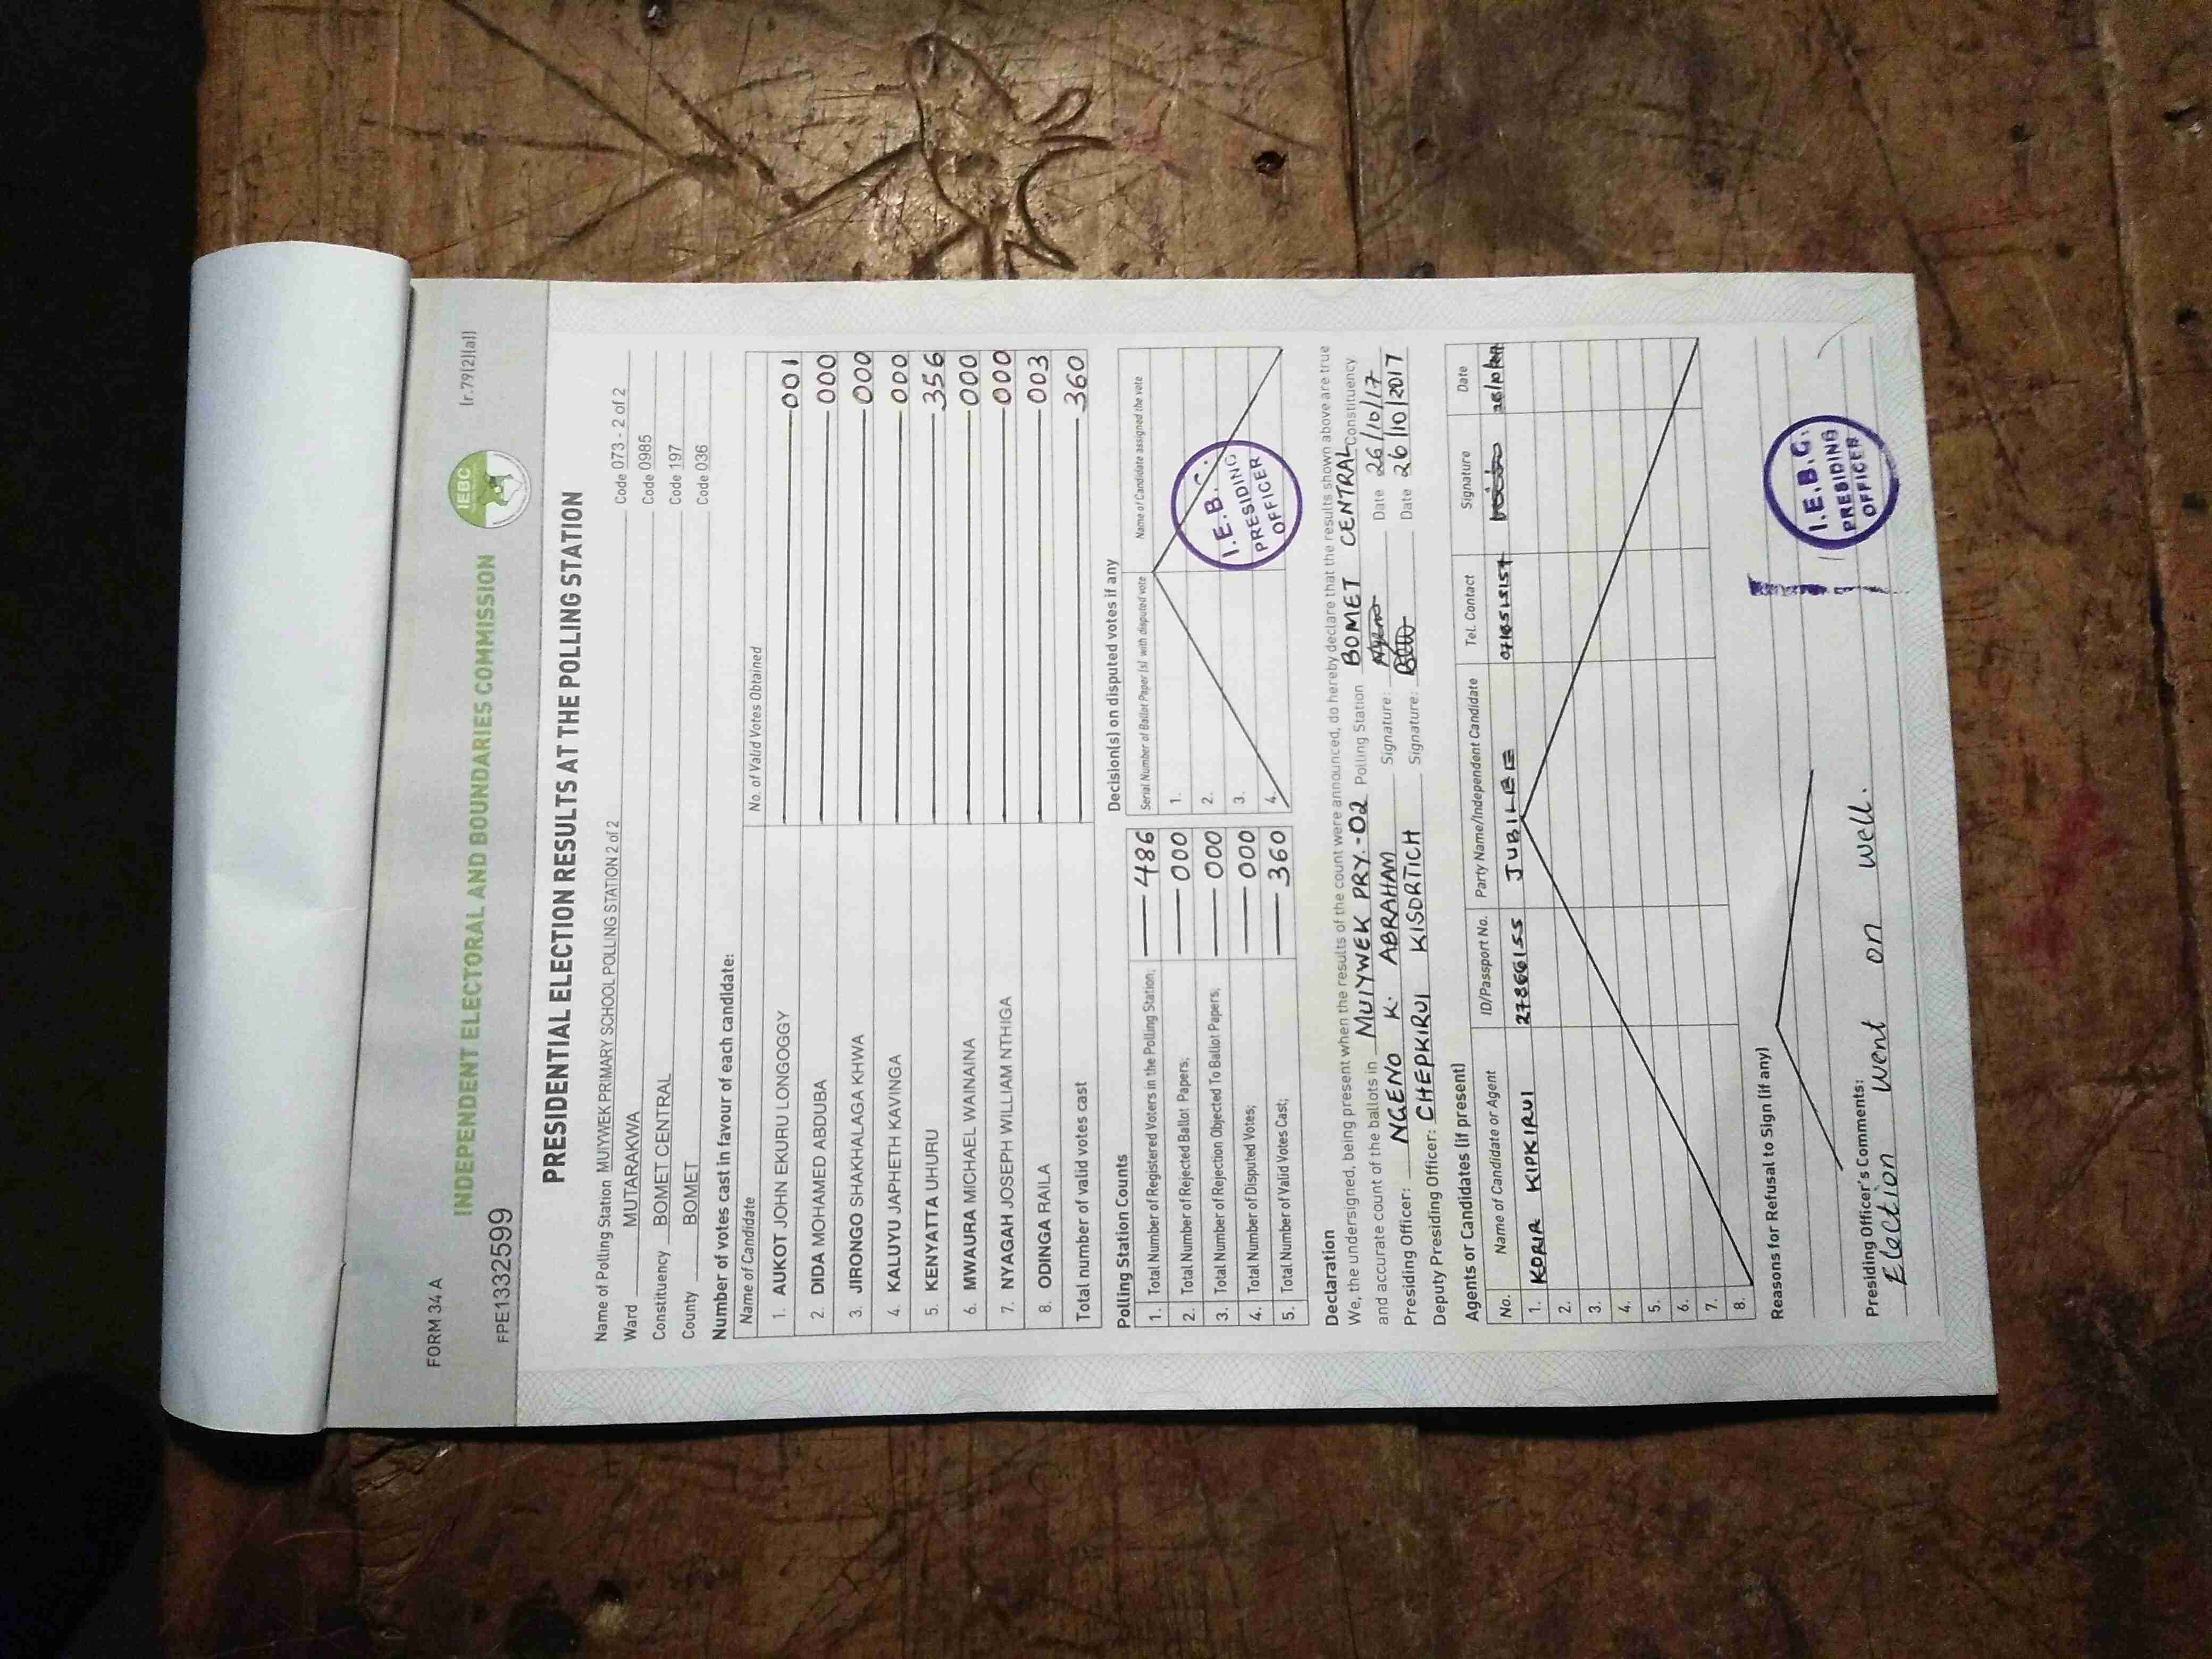 FORM 34 A
[r.79(2)(a)]
INDEPENDENT ELECTORAL AND BOUNDARIES COMMISSION
IEBC
FPE1332599
PRESIDENTIAL ELECTION RESULTS AT THE POLLING STATION
Name of Polling Station MUIYWEK PRIMARY SCHOOL POLLING STATION 2 of 2 Code 073 - 2 of 2
Ward MUTARAKWA Code 0985
Constituency BOMET CENTRAL Code 197
County BOMET Code 036
Number of votes cast in favour of each candidate:
Name of Candidate No. of Valid Votes Obtained
1. AUKOT JOHN EKURU LONGOGGY 001
2. DIDA MOHAMED ABDUBA 000
3. JIRONGO SHAKHALAGA KHWA 000
4. KALUYU JAPHETH KAVINGA 000
5. KENYATTA UHURU 356
6. MWAURA MICHAEL WAINAINA 000
7. NYAGAH JOSEPH WILLIAM NTHIGA 000
8. ODINGA RAILA 003
Total number of valid votes cast 360
Polling Station Counts
1. Total Number of Registered Voters in the Polling Station; 486
2. Total Number of Rejected Ballot Papers; 000
3. Total Number of Rejection Objected To Ballot Papers; 000
4. Total Number of Disputed Votes; 000
5. Total Number of Valid Votes Cast; 360
Decision(s) on disputed votes if any
Serial Number of Ballot Paper (s) with disputed vote Name of Candidate assigned the vote
1.
2.
3.
4.
I.E.B.C.
PRESIDING
OFFICER
Declaration
We, the undersigned, being present when the results of the count were announced, do hereby declare that the results shown above are true
and accurate count of the ballots in MUIYWEK PRY.-02 Polling Station BOMET CENTRAL Constituency
Presiding Officer: NGENO K. ABRAHAM Signature: Date 26/10/17
Deputy Presiding Officer: CHEPKIRUI KISORTICH Signature: Date 26/10/2017
Agents or Candidates (if present)
No. Name of Candidate or Agent ID/Passport No. Party Name/Independent Candidate Tel. Contact Signature Date
1. KORIR KIPKIRUI 27866155 JUBILEE
2.
3.
4.
5.
6.
7.
8.
Reasons for Refusal to Sign (if any)
Presiding Officer's Comments:
Election went on well.
I.E.B.C.
PRESIDING
OFFICER